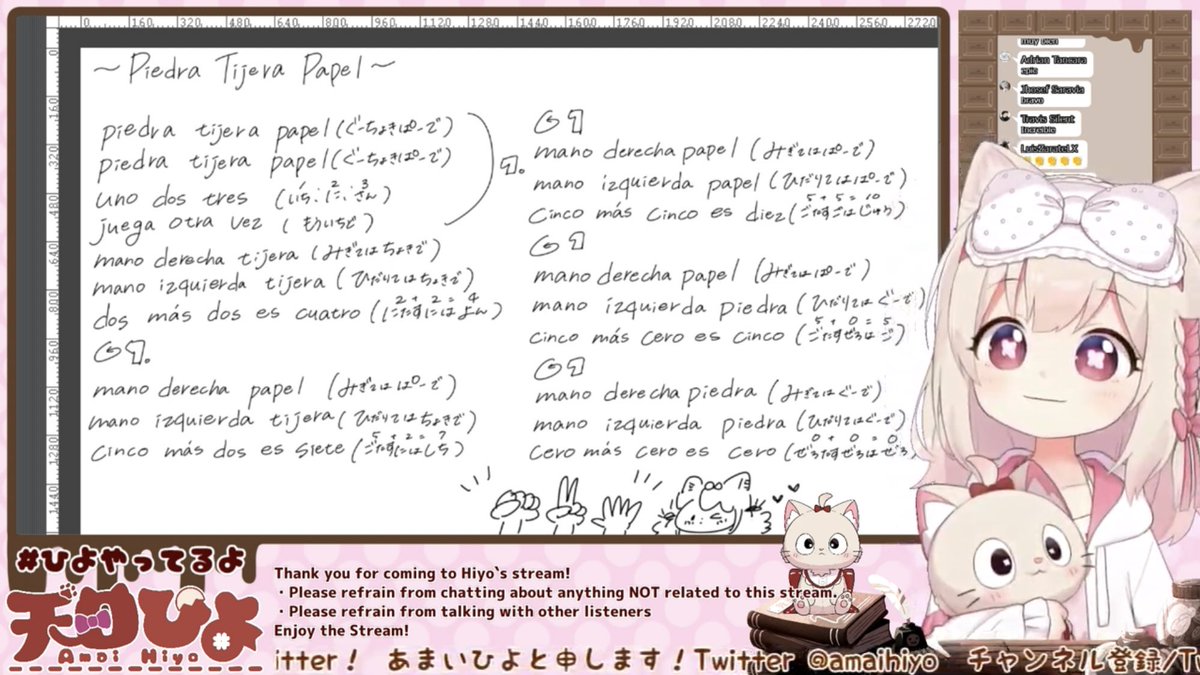 0 160 320 480 640 800 960 1120 1280 1440 1600 1760 1920 2080 2240 2400 2560 2720
0
160
320
480
640
800
960
1120
1280
1440
~Piedra Tijera Papel~
piedra tijera papel(ぐーちょきぱーで)
piedra tijera papel(ぐーちょきぱーで)
uno dos tres (いち、に、さん)
1 2 3
juega otra vez (もういちど)
1.
mano derecha tijera (みぎてはちょきで)
mano izquierda tijera (ひだりてはちょきで)
2 + 2 = 4
dos más dos es cuatro (にたすにはよん)
1.
mano derecha papel (みぎてはぱーで)
mano izquierda tijera (ひだりてはちょきで)
5 + 2 = 7
cinco más dos es siete (ごたすにはしち)
1
mano derecha papel (みぎてはぱーで)
mano izquierda papel (ひだりてはぱーで)
5 + 5 = 10
cinco más cinco es diez(ごたすごはじゅう)
1
mano derecha papel (みぎてはぱーで)
mano izquierda piedra (ひだりてはぐーで)
5 + 0 = 5
cinco más cero es cinco (ごたすぜろはご)
1
mano derecha piedra (みぎてはぐーで)
mano izquierda piedra (ひだりてはぐーで)
0 + 0 = 0
cero más cero es cero (ぜろたすぜろはぜろ)
muy bien
Adrian Tancara
epic
Jhosef Saravia
bravo
Travis Silent
Increible
LuisZarateLX
#ひよやってるよ
天日ひよ
Ambi Hiyo
Thank you for coming to Hiyo`s stream!
・Please refrain from chatting about anything NOT related to this stream.
・Please refrain from talking with other listeners
Enjoy the Stream!
itter! あまいひよと申します!Twitter @amaihiyo チャンネル登録/Tw